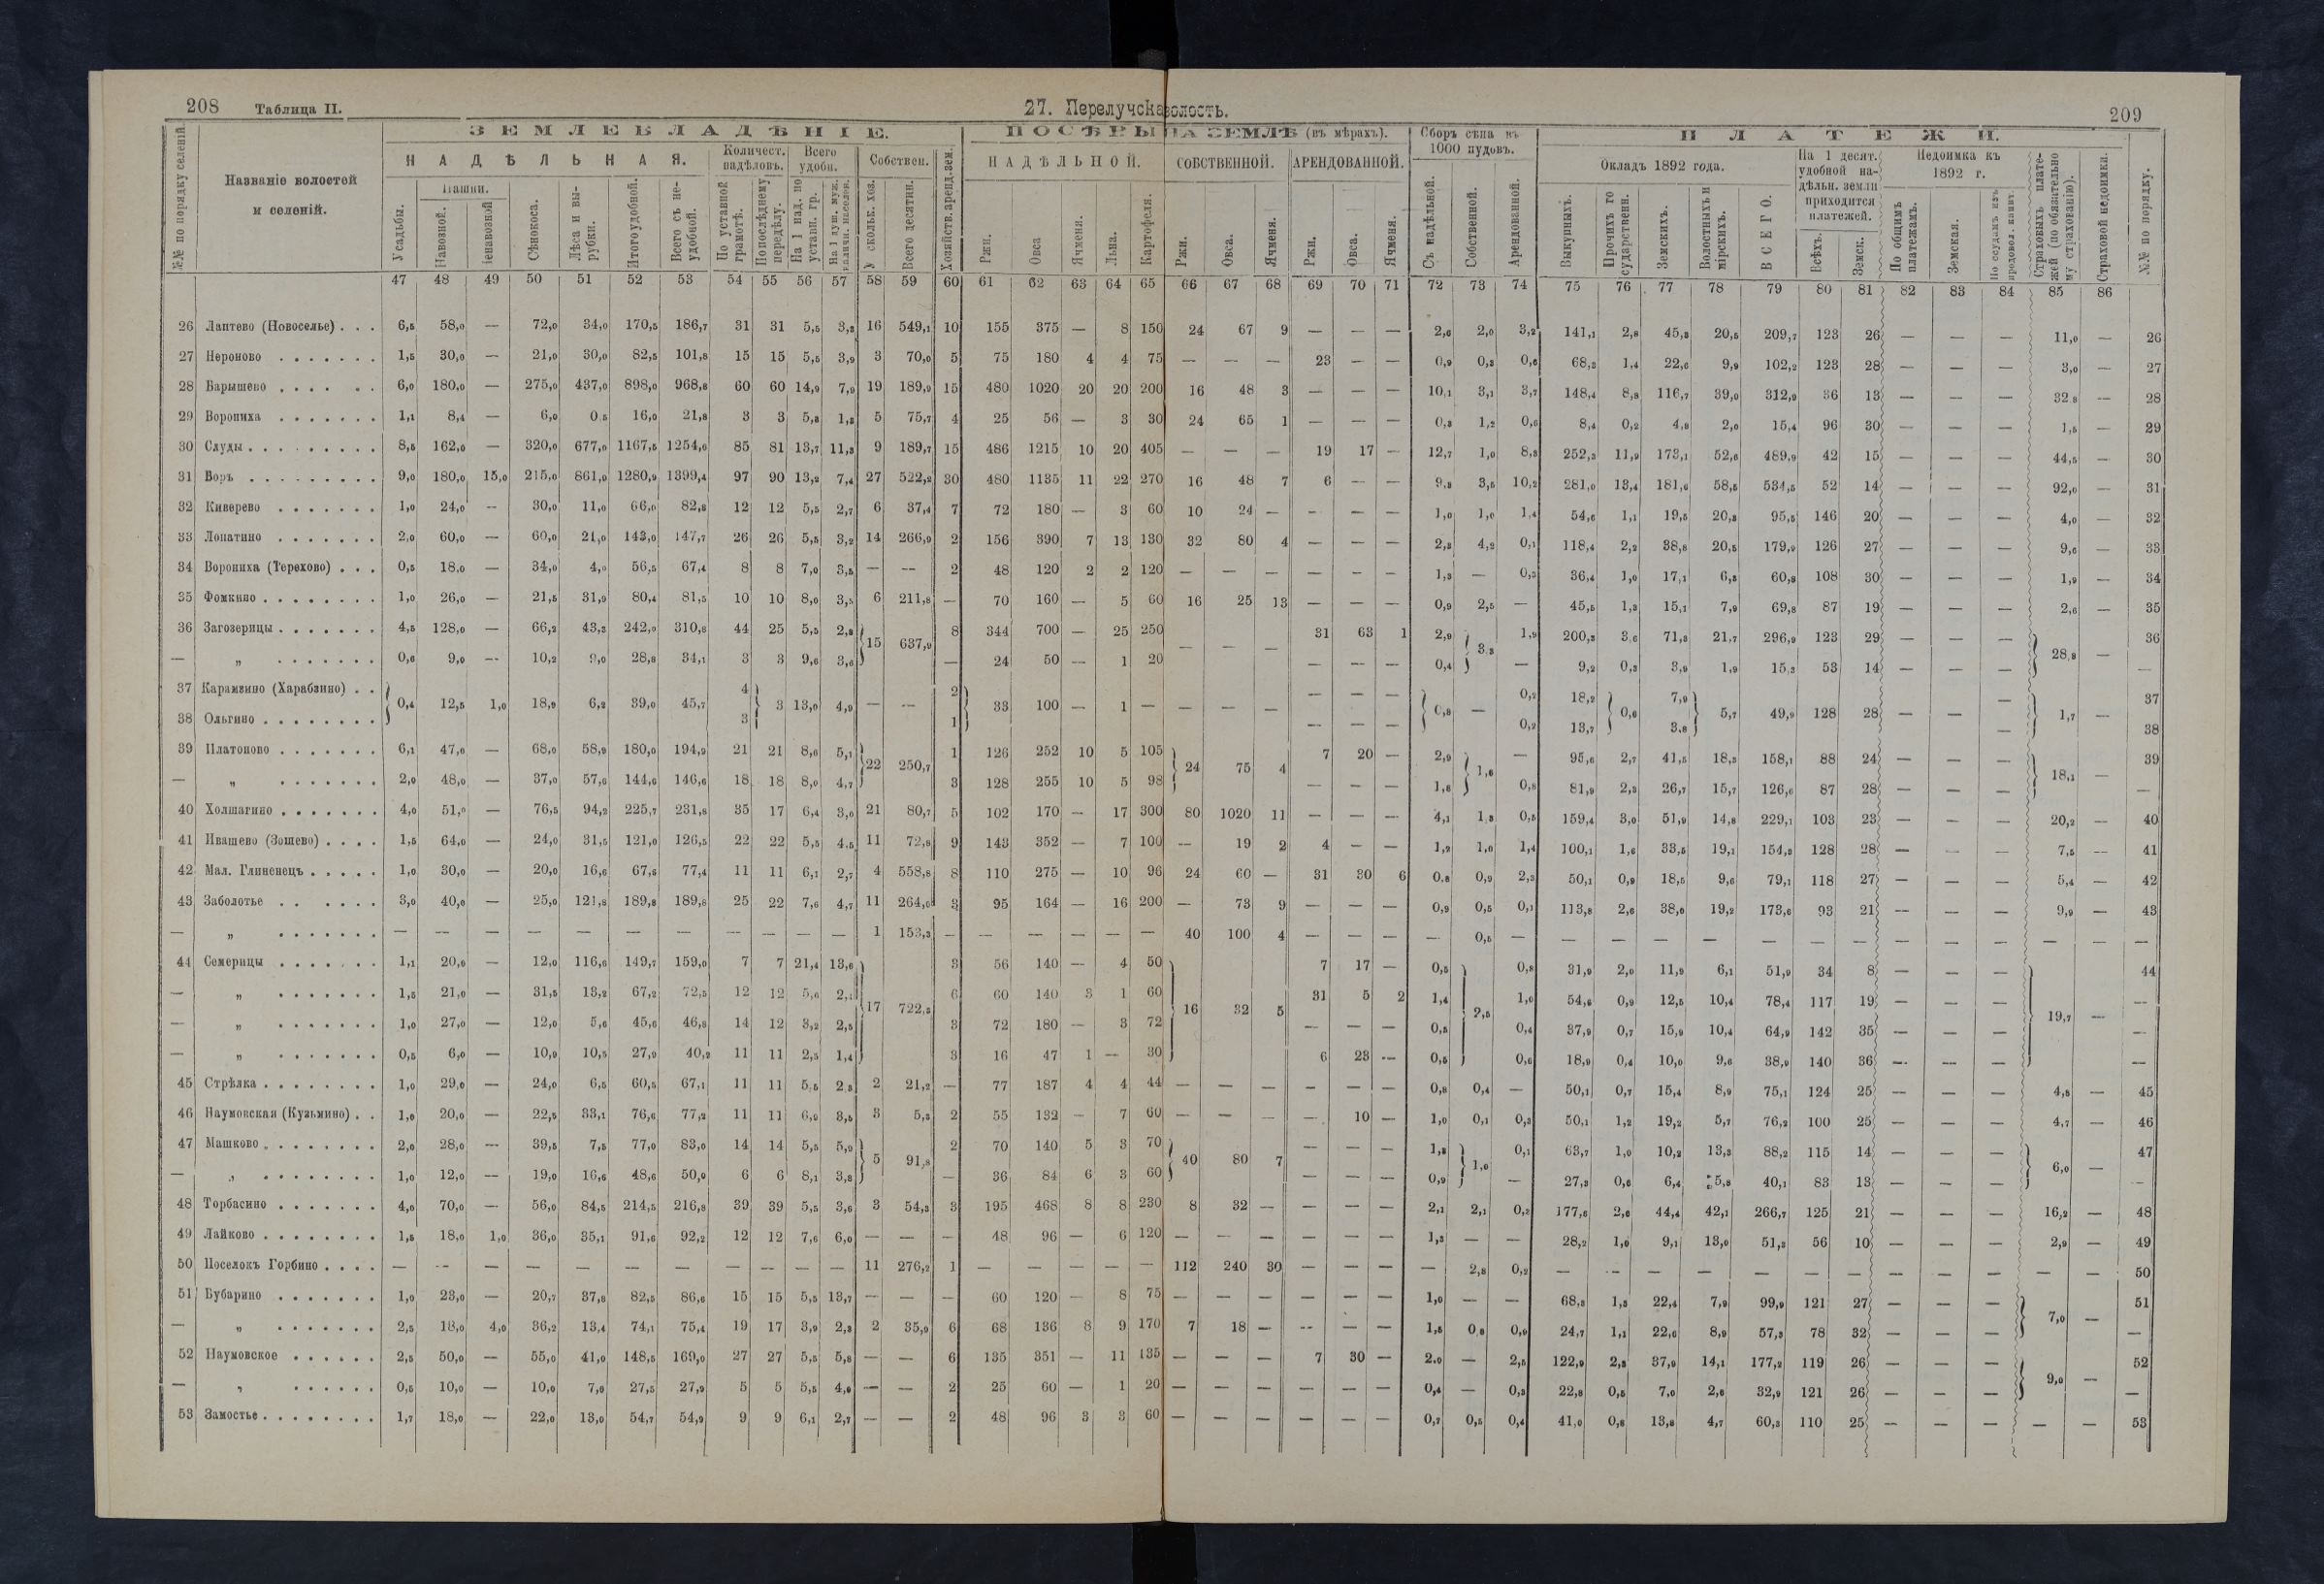 208 Таблица II. 27. Перелучска волость. 209
ЗЕМЛЕВЛАДѢНІЕ. ПОСѢВЫ НА ЗЕМЛѢ (въ мѣрахъ). Сборъ сѣна въ 1000 пудовъ. ПЛАТЕЖИ.
НАДѢЛЬНАЯ. Количест. надѣловъ. Всего удобн. Собствен. НАДѢЛЬНОЙ. СОБСТВЕННОЙ. АРЕНДОВАННОЙ. Окладъ 1892 года. На 1 десят. удобной на-дѣльн. земли приходится платежей. Недоимка къ 1892 г.
№№ по порядку селеній. Названіе волостей и селеній. Усадьбы. Пашни. Навозной. Ненавозной Сѣнокоса. Лѣса и вы-рубки. Итого удобной. Всего съ не-удобной. По уставной грамотѣ. По послѣднему передѣлу. На 1 над. по уставн. гр. На 1 душ. муж. налич. населен. У скольк. хоз. Всего десятин. Хозяйств. аренд. зем. Ржи. Овса Ячменя. Льна. Картофеля. Ржи. Овса. Ячменя. Ржи. Овса. Ячменя. Съ надѣльной. Собственной. Арендованной. Выкупныхъ. Прочихъ го сударственн. Земскихъ. Волостныхъ и мірскихъ. ВСЕГО. Всѣхъ. Земск. По общимъ платежамъ. Земская. По ссудамъ изъ продовол. капит. Страховыхъ плате-жей (по обязательно му страхованію). Страховой недоимки. №№ по порядку.
47 48 49 50 51 52 53 54 55 56 57 58 59 60 61 62 63 64 65 66 67 68 69 70 71 72 73 74 75 76 77 78 79 80 81 82 83 84 85 86
26 Лаптево (Новоселье) . . . 6,5 58,0 — 72,0 34,0 170,5 186,7 31 31 5,5 3,8 16 549,1 10 155 375 — 8 150 24 67 9 — — — 2,6 2,0 3,2 141,1 2,8 45,3 20,5 209,7 123 26 — — — 11,0 — 26
27 Нероново . . . . . . . 1,5 30,0 — 21,0 30,0 82,5 101,8 15 15 5,5 3,9 3 70,0 5 75 180 4 4 75 — — — 23 — — 0,9 0,3 0,6 68,3 1,4 22,6 9,9 102,2 123 28 — — — 3,0 — 27
28 Барышево . . . . . . 6,0 180,0 — 275,0 437,0 898,0 968,8 60 60 14,9 7,9 19 189,9 15 480 1020 20 20 200 16 48 3 — — — 10,1 3,1 3,7 148,4 8,8 116,7 39,0 312,9 36 13 — — — 32,8 — 28
29 Ворониха . . . . . . . 1,1 8,4 — 6,0 0,5 16,0 21,8 3 3 5,8 1,8 5 75,7 4 25 56 — 3 30 24 65 1 — — — 0,3 1,2 0,6 8,4 0,2 4,8 2,0 15,4 96 30 — — — 1,5 — 29
30 Слуды . . . . . . . . . 8,5 162,0 — 320,0 677,0 1167,5 1254,0 85 81 13,7 11,3 9 189,7 15 486 1215 10 20 405 — — — 19 17 — 12,7 1,0 8,3 252,3 11,9 173,1 52,6 489,9 42 15 — — — 44,5 — 30
31 Боръ . . . . . . . . . 9,0 180,0 15,0 215,0 861,9 1280,9 1399,4 97 90 13,2 7,4 27 522,2 30 480 1135 11 22 270 16 48 7 6 — — 9,8 3,5 10,2 281,0 13,4 181,6 58,5 534,5 52 14 — — — 92,0 — 31
32 Киверево . . . . . . . 1,0 24,0 — 30,0 11,0 66,0 82,8 12 12 5,5 2,7 6 37,4 7 72 180 — 3 60 10 24 — — — — 1,0 1,0 1,4 54,6 1,1 19,5 20,3 95,5 146 20 — — — 4,0 — 32
33 Лопатино . . . . . . . 2,0 60,0 — 60,0 21,0 143,0 147,7 26 26 5,5 3,2 14 266,9 2 156 390 7 13 130 32 80 4 — — — 2,3 4,2 0,1 118,4 2,2 38,8 20,5 179,9 126 27 — — — 9,6 — 33
34 Ворониха (Терехово) . . . 0,5 18,0 — 34,0 4,0 56,5 67,4 8 8 7,0 3,5 — — 2 48 120 2 2 120 — — — — — — 1,3 — 0,3 36,4 1,0 17,1 6,3 60,8 108 30 — — — 1,9 — 34
35 Фомкино . . . . . . . . 1,0 26,0 — 21,5 31,9 80,4 81,5 10 10 8,0 3,5 6 211,8 — 70 160 — 5 60 16 25 13 — — — 0,9 2,5 — 45,5 1,3 15,1 7,9 69,8 87 19 — — — 2,6 — 35
36 Загозерицы . . . . . . . 4,5 128,0 — 66,2 43,3 242,0 310,8 44 25 5,5 2,8 15 637,9 8 344 700 — 25 250 — — — 31 63 1 2,9 3,3 1,9 200,3 3,6 71,3 21,7 296,9 123 29 — — — 28,8 — 36
— „ . . . . . . . 0,6 9,0 — 10,2 9,0 28,8 34,1 3 3 9,6 3,6 — 24 50 — 1 20 — — — 0,4 — 9,2 0,3 3,9 1,9 15,3 53 14 — — — —
37 Карамзино (Харабзино) . . 0,4 12,5 1,0 18,9 6,2 39,0 45,7 4 3 13,0 4,9 — — 2 33 100 — 1 — — — — — — — 0,8 — 0,2 18,2 0,6 7,9 5,7 49,9 128 28 — — — 1,7 — 37
38 Ольгино . . . . . . . . 3 1 — — — 0,2 13,7 3,8 — 38
39 Платоново . . . . . . . 6,1 47,6 — 68,0 58,9 180,0 194,9 21 21 8,6 5,1 22 250,7 1 126 252 10 5 105 24 75 4 7 20 — 2,9 1,6 — 95,6 2,7 41,5 18,3 158,1 88 24 — — — 18,1 — 39
— „ . . . . . . . 2,0 48,0 — 37,0 57,6 144,6 146,6 18 18 8,0 4,7 3 128 255 10 5 98 — — — 1,8 0,8 81,9 2,3 26,7 15,7 126,6 87 28 — — — —
40 Холшагино . . . . . . . 4,0 51,0 — 76,5 94,2 225,7 231,8 35 17 6,4 3,0 21 80,7 5 102 170 — 17 300 80 1020 11 — — — 4,1 1,3 0,5 159,4 3,0 51,9 14,8 229,1 103 23 — — — 20,2 — 40
41 Ивашево (Зошево) . . . . 1,5 64,0 — 24,0 31,5 121,0 126,5 22 22 5,5 4,5 11 72,8 9 143 352 — 7 100 — 19 2 4 — — 1,9 1,0 1,4 100,1 1,6 33,5 19,1 154,3 128 28 — — — 7,5 — 41
42 Мал. Глиненецъ . . . . . 1,0 30,0 — 20,0 16,6 67,6 77,4 11 11 6,1 2,7 4 558,8 8 110 275 — 10 96 24 60 — 31 30 6 0,8 0,9 2,3 50,1 0,9 18,5 9,6 79,1 118 27 — — — 5,4 — 42
43 Заболотье . . . . . . 3,0 40,0 — 25,0 121,8 189,8 189,8 25 22 7,6 4,7 11 264,0 3 95 164 — 16 200 — 73 9 — — — 0,9 0,5 0,1 113,8 2,6 38,0 19,2 173,6 93 21 — — — 9,9 — 43
— „ . . . . . . . — — — — — — — — — — — 1 153,3 — — — — — — 40 100 4 — — — — 0,5 — — — — — — — — — — — — — —
44 Семерицы . . . . . . . 1,1 20,0 — 12,0 116,6 149,7 159,0 7 7 21,4 13,6 17 722,5 3 56 140 — 4 50 16 32 5 7 17 — 0,5 2,5 0,8 31,9 2,0 11,9 6,1 51,9 34 8 — — — 19,7 — 44
— „ . . . . . . . 1,5 21,0 — 31,5 13,2 67,2 72,5 12 12 5,6 6 60 140 3 1 60 31 5 2 1,4 1,0 54,6 0,9 12,5 10,4 78,4 117 19 — — — —
— „ . . . . . . . 1,0 27,0 — 12,0 5,6 45,6 46,8 14 12 3,2 2,5 3 72 180 — 3 72 — — — 0,5 0,4 37,9 0,7 15,9 10,4 64,9 142 35 — — — —
— „ . . . . . . . 0,5 6,0 — 10,9 10,5 27,9 40,2 11 11 2,5 1,4 3 16 47 1 — 30 6 23 — 0,5 0,6 18,9 0,4 10,0 9,6 38,9 140 36 — — — —
45 Стрѣлка . . . . . . . . 1,0 29,0 — 24,0 6,5 60,5 67,1 11 11 5,5 2,5 2 21,2 — 77 187 4 4 44 — — — — — — 0,8 0,4 — 50,1 0,7 15,4 8,9 75,1 124 25 — — — 4,8 — 45
46 Наумовская (Кузьмино) . . 1,0 20,0 — 22,5 33,1 76,6 77,2 11 11 6,9 3,5 3 5,3 2 55 132 — 7 60 — — — — 10 — 1,0 0,1 0,3 50,1 1,2 19,2 5,7 76,2 100 25 — — — 4,7 — 46
47 Машково . . . . . . . . 2,0 28,0 — 39,5 7,5 77,0 83,0 14 14 5,5 5,9 5 91,8 2 70 140 5 3 70 40 80 7 — — — 1,8 1,0 0,1 63,7 1,0 10,2 13,3 88,2 115 14 — — — 6,0 — 47
— „ . . . . . . . . 1,0 12,0 — 19,0 16,6 48,6 50,0 6 6 8,1 3,8 — 36 84 6 3 60 — — — 0,9 — 27,3 0,6 6,4 5,8 40,1 83 13 — — — —
48 Торбасино . . . . . . . 4,0 70,0 — 56,0 84,5 214,5 216,8 39 39 5,5 3,6 3 54,3 3 195 468 8 8 230 8 32 — — — — 2,1 2,1 0,2 177,6 2,6 44,4 42,1 266,7 125 21 — — — 16,2 — 48
49 Лайково . . . . . . . . 1,5 18,0 1,0 36,0 35,1 91,6 92,2 12 12 7,6 6,0 — — — 48 96 — 6 120 — — — — — — 1,3 — — 28,2 1,0 9,1 13,0 51,3 56 10 — — — 2,9 — 49
50 Поселокъ Горбино . . . . — — — — — — — — — — — 11 276,2 1 — — — — — 112 240 30 — — — — 2,8 0,2 — — — — — — — — — — — — 50
51 Бубарино . . . . . . . 1,0 23,0 — 20,7 37,8 82,5 86,6 15 15 5,5 13,7 — — — 60 120 — 8 75 — — — — — — 1,0 — — 68,3 1,3 22,4 7,9 99,9 121 27 — — — 7,0 — 51
— „ . . . . . . . 2,5 18,0 4,0 36,2 13,4 74,1 75,4 19 17 3,9 2,3 2 35,9 6 68 136 8 9 170 7 18 — — — — 1,5 0,8 0,9 24,7 1,1 22,6 8,9 57,3 78 32 — — — —
52 Наумовское . . . . . . 2,5 50,0 — 55,0 41,0 148,5 169,0 27 27 5,5 5,8 — — 6 135 351 — 11 135 — — — 7 30 — 2,0 — 2,5 122,9 2,3 37,9 14,1 177,2 119 26 — — — 9,0 — 52
— „ . . . . . . 0,5 10,0 — 10,0 7,0 27,5 27,9 5 5 5,5 4,0 — — 2 25 60 — 1 20 — — — — — — 0,4 — 0,3 22,8 0,5 7,0 2,6 32,9 121 26 — — — —
53 Замостье . . . . . . . . 1,7 18,0 — 22,0 13,0 54,7 54,9 9 9 6,1 2,7 — — 2 48 96 3 3 60 — — — — — — 0,7 0,5 0,4 41,0 0,8 13,8 4,7 60,3 110 25 — — — — — 53